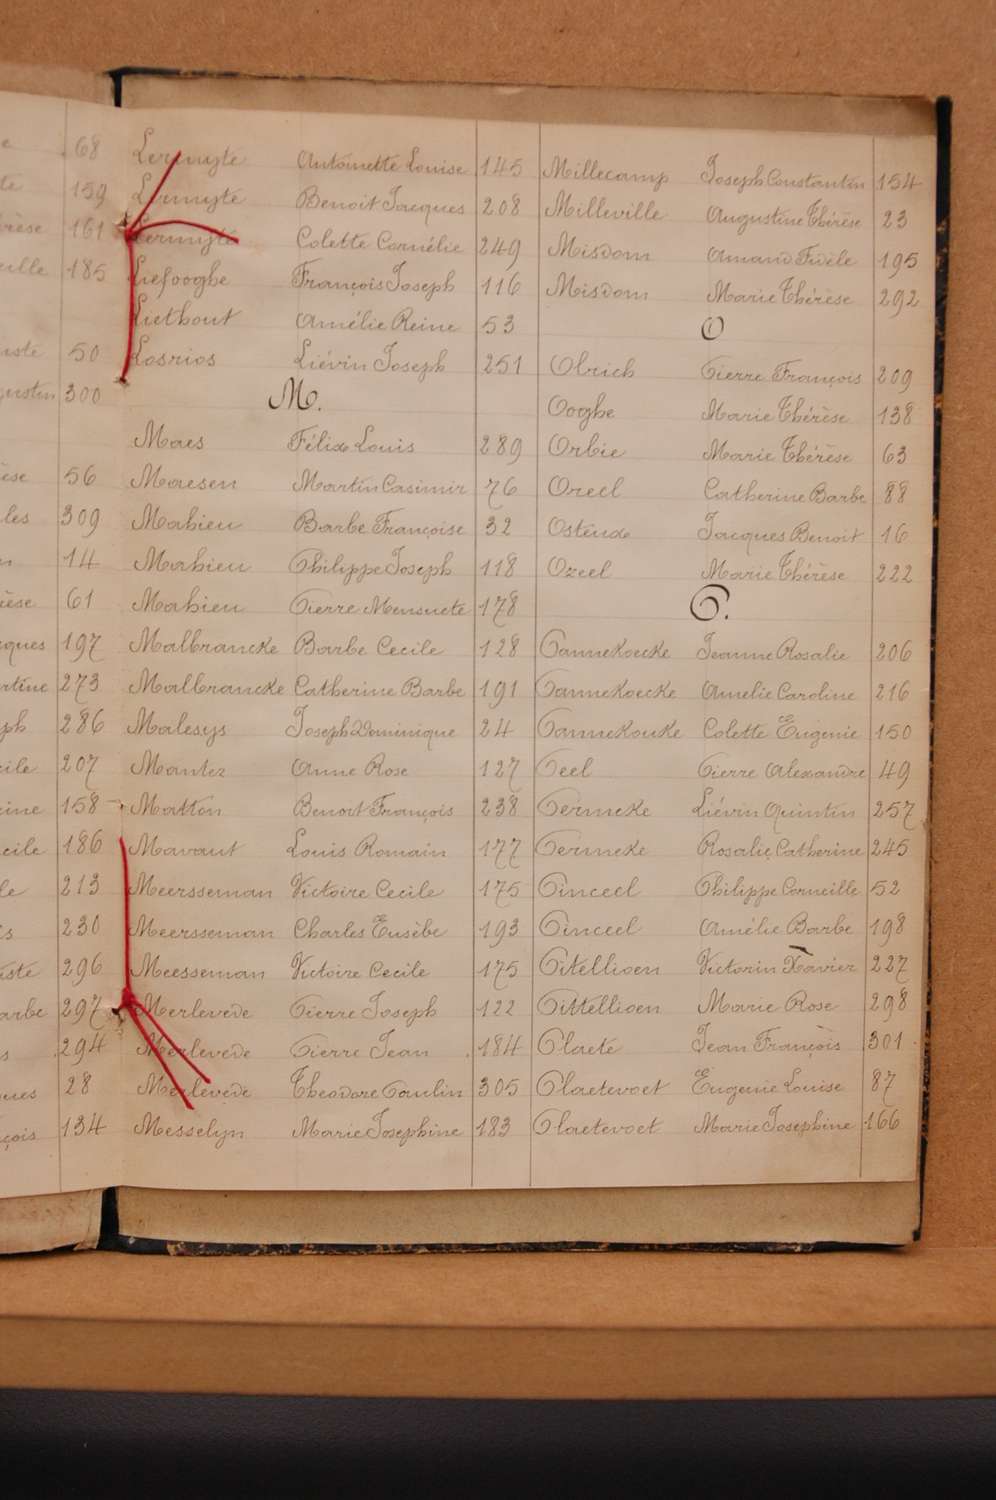 68
159
161
185
50
300
56
309
14
61
197
273
286
207
158
186
213
230
296
297
294
28
134
Lermyte Antoinette Louise 145
Lermyte Benoit Jacques 208
Lermyte Colette Cornélie 249
Liefooghe François Joseph 116
Liethout Amélie Reine 53
Losrios Liévin Joseph 251
M.
Maes Félix Louis 289
Maesen Martin Casimir 76
Mahieu Barbe Françoise 32
Mahieu Philippe Joseph 118
Mahieu Pierre Mensuete 178
Malbrancke Barbe Cecile 128
Malbrancke Catherine Barbe 191
Malesys Joseph Dominique 24
Mantez Anne Rose 127
Matton Benoit François 238
Mavaut Louis Romain 177
Meersseman Victoire Cecile 175
Meersseman Charles Eusèbe 193
Meesseman Victoire Cecile 175
Merlevede Pierre Joseph 122
Merlevede Pierre Jean 184
Merlevede Theodore Paulin 305
Messelyn Marie Josephine 183
Millecamp Joseph Constantin 154
Milleville Augustine Thérèse 23
Misdom Amand Fidèle 195
Misdom Marie Thérèse 292
O
Olrich Pierre François 209
Ooghe Marie Thérèse 138
Orbie Marie Thérèse 63
Orecl Catherine Barbe 88
Ostende Jacques Benoit 16
Ozeel Marie Thérèse 222
P.
Pannekoecke Jeanne Rosalie 206
Pannekoecke Amelie Caroline 216
Pannekouke Colette Eugenie 150
Peel Pierre Alexandre 49
Permeke Liévin Quintin 257
Permeke Rosalie Catherine 245
Pinceel Philippe Corneille 52
Pinceel Amélie Barbe 198
Pitellioen Victorin Xavier 227
Pittellioen Marie Rose 298
Plaete Jean François 301
Plaetevoet Eugenie Louise 87
Plaetevoet Marie Josephine 166